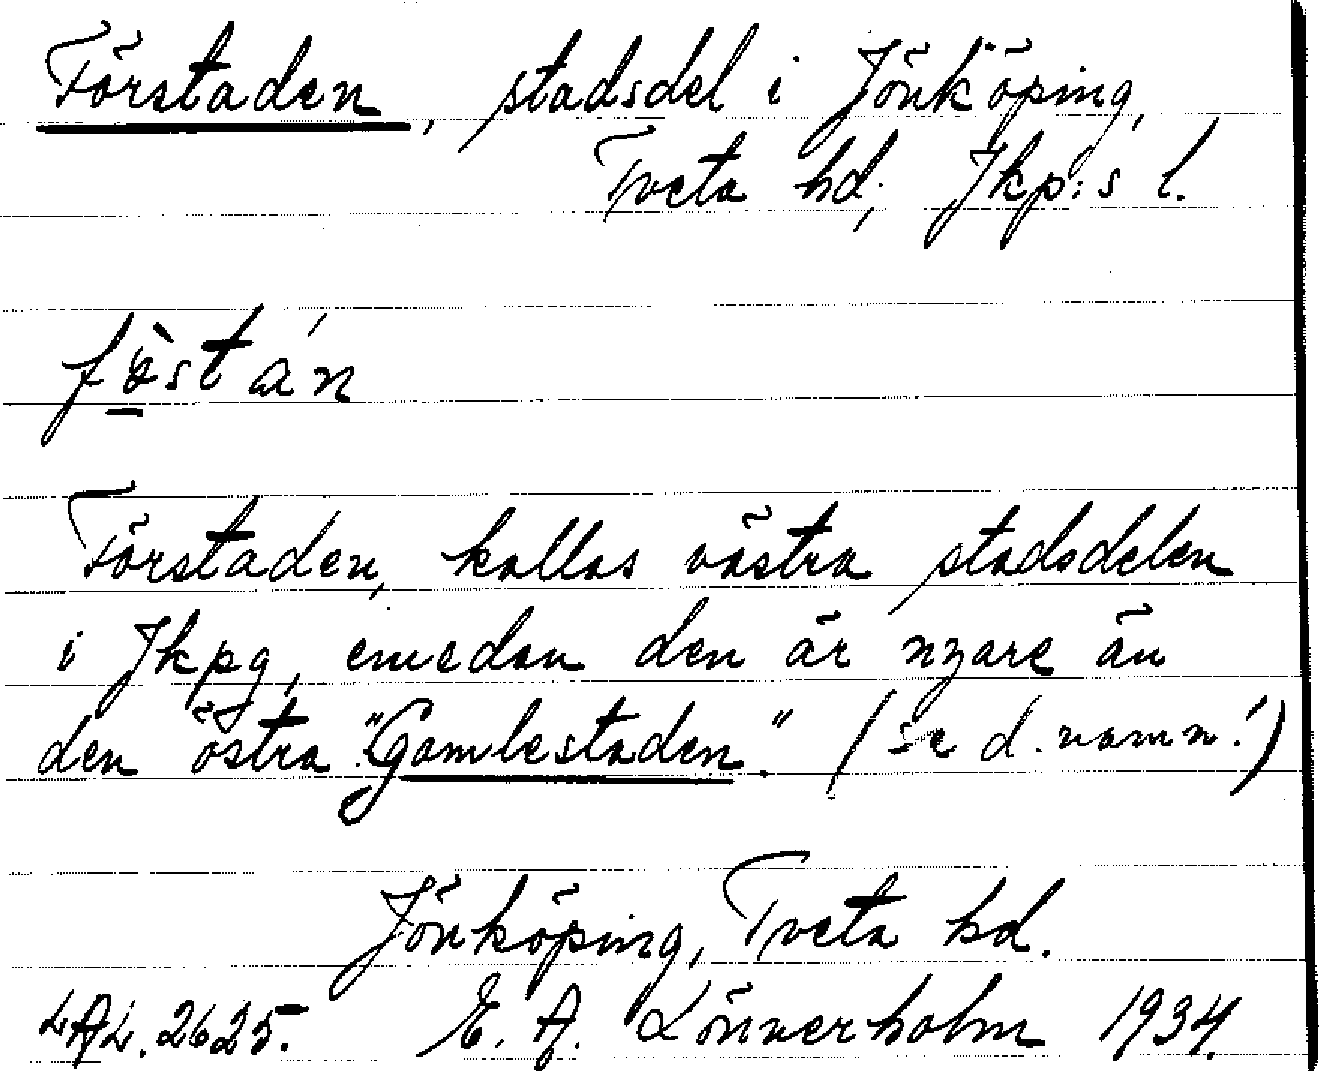 Förstaden, stadsdel i Jönköping,
Tveta hd, Jkp:s l.
föstán
Förstaden, kallas västra stadsdelen
i Jkpg, emedan den är nyare än
den östra "Gamlestaden." (se d. namn!)
Jönköping, Tveta hd.
LAL. 2625. E. A. Lönnerholm 1934.